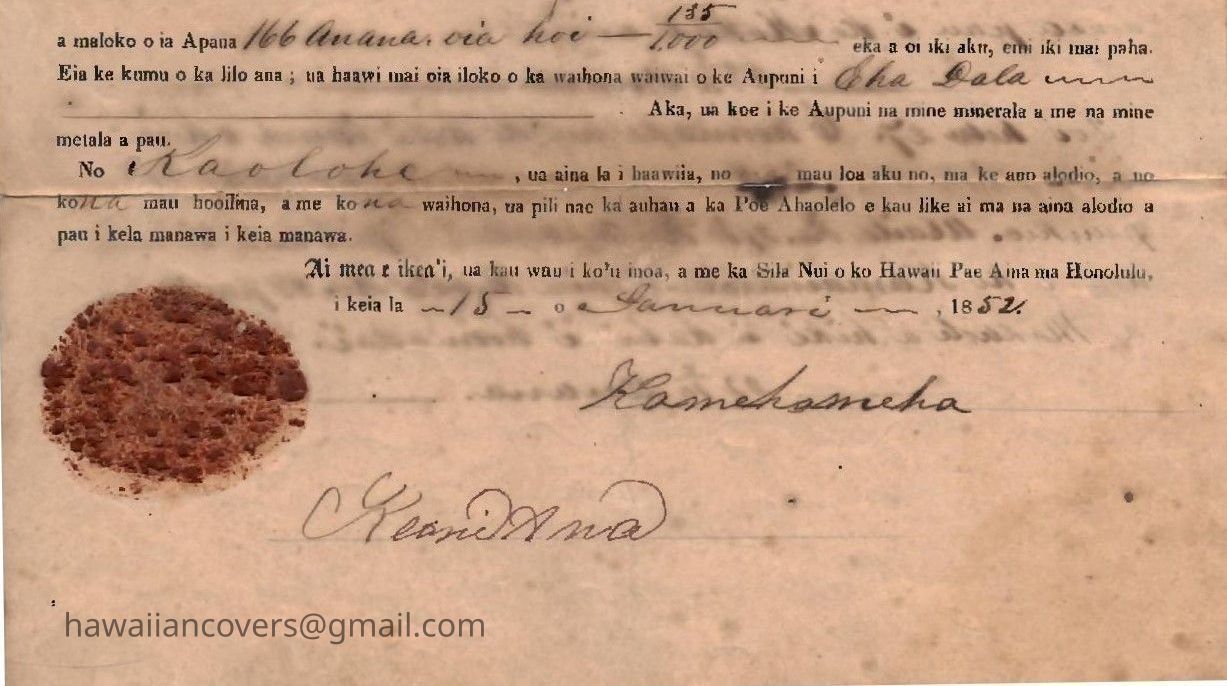 a maloko o ia Apana 166 Anana. oia hoi — 135/1000 eka a oi iki aku, emi iki mai paha.
Eia ke kumu o ka lilo ana; ua haawi mai oia iloko o ka waihona waiwai o ke Aupuni i Eha Dala
Aka, ua koe i ke Aupuni na mine minerala a me na mine
metala a pau.
No Kaolohe, ua aina la i haawiia, no mau loa aku no, ma ke ano alodio, a no
kona mau hooilina, a me kona waihona, ua pili nae ka auhau a ka Poe Ahaolelo e kau like ai ma na aina alodio a
pau i kela manawa i keia manawa.
Ai mea e ikea'i, ua kau wau i ko'u inoa, a me ka Sila Nui o ko Hawaii Pae Aina ma Honolulu,
i keia la 15 o Ianuari, 1852.
Kamehameha
Keoni Ana
hawaiiancovers@gmail.com